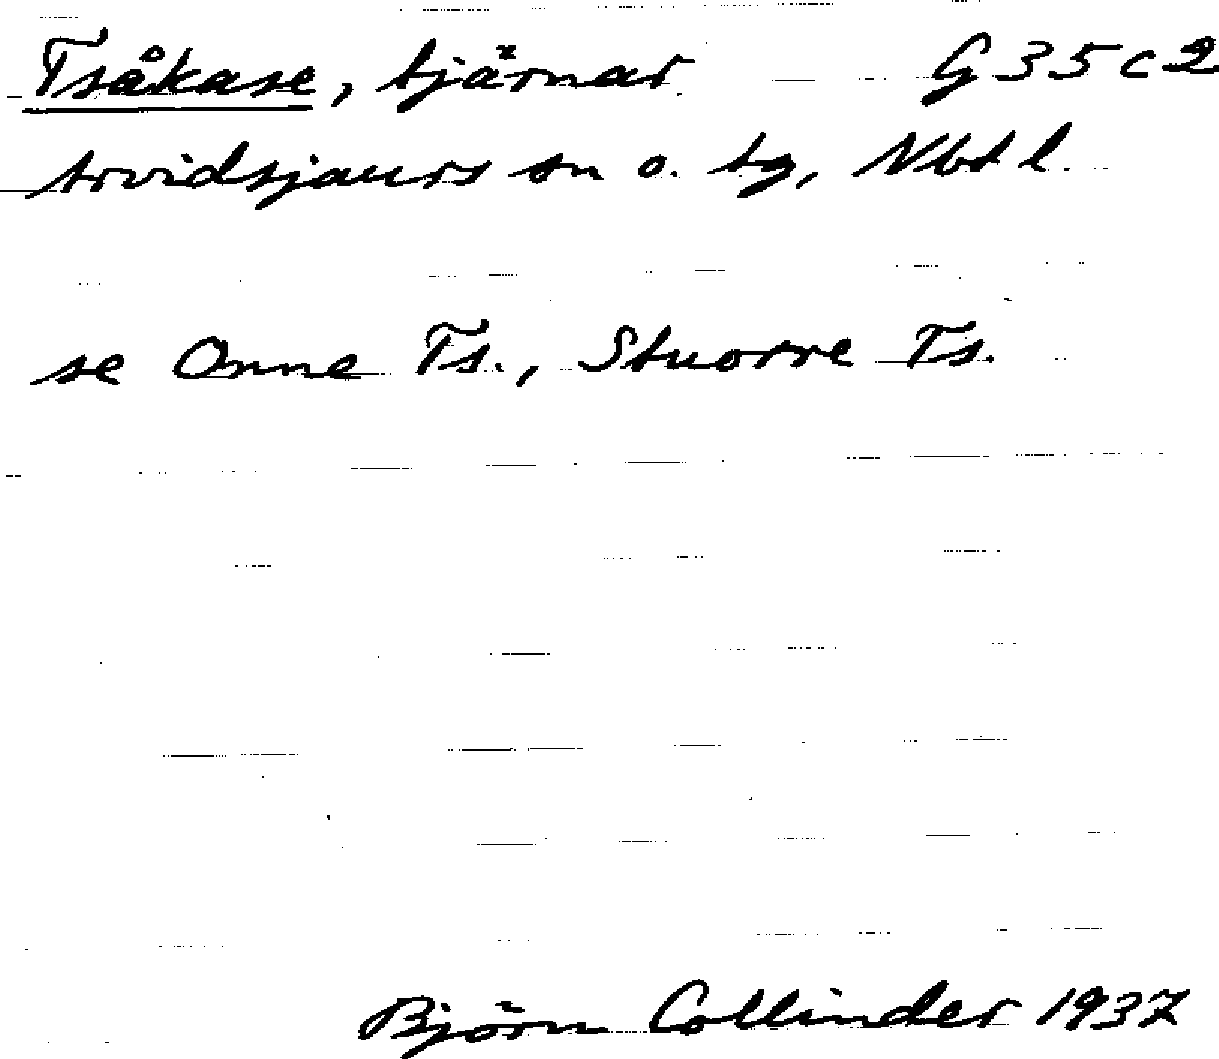 Tsåkase, tjärnar G 35 c 2
Arvidsjaurs sn o. tg, Nbtl.
se Onne Ts., Stuorre Ts.
Björn Collinder 1937